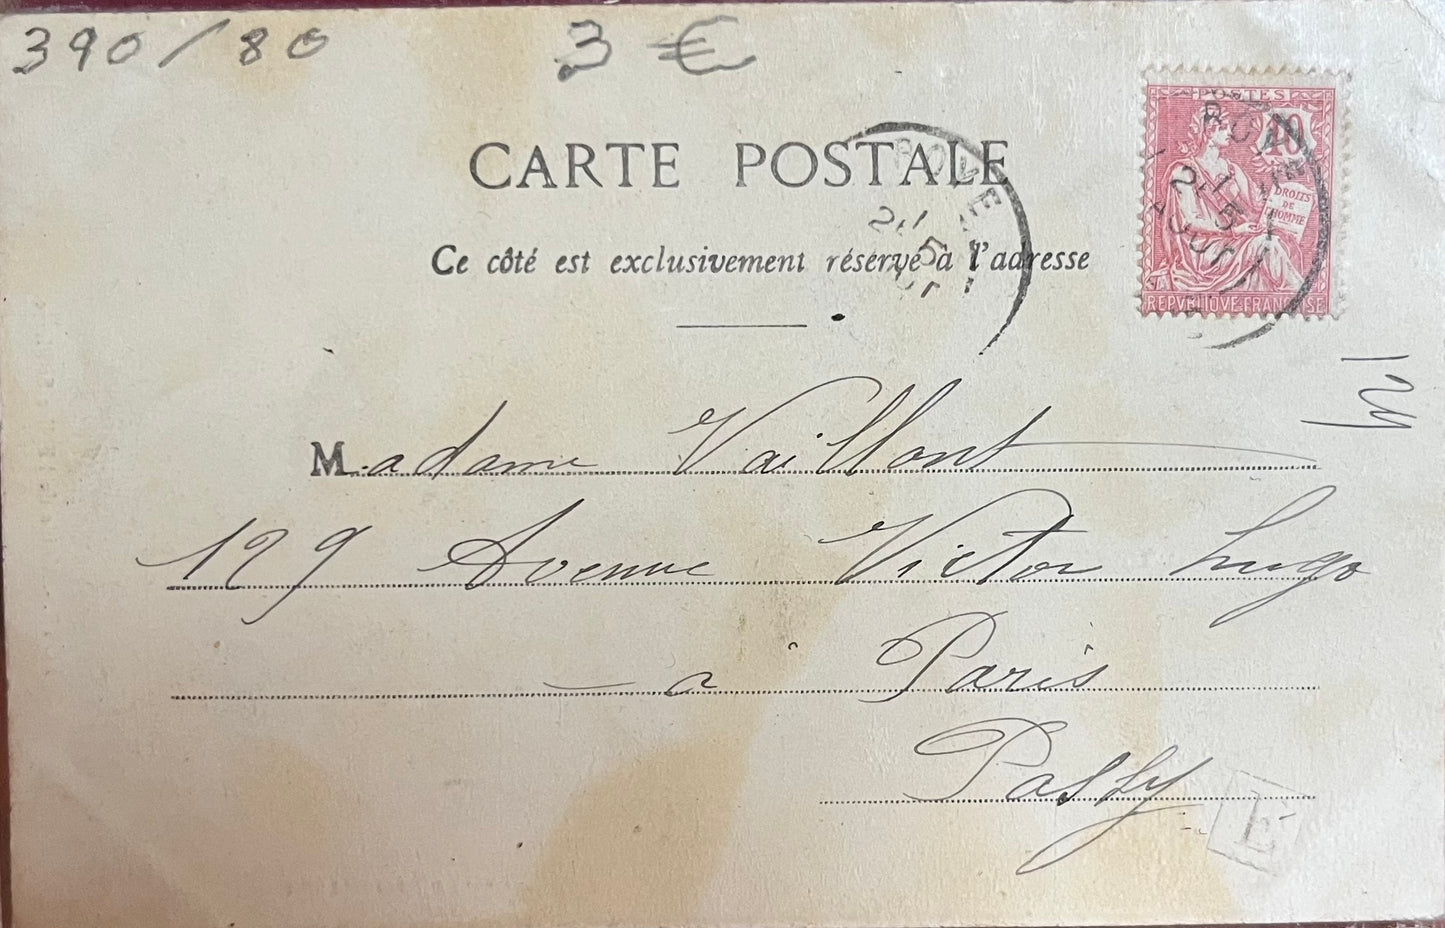 390/80 3 €
POSTES
10
DROITS
DE
L'HOMME
REPVBLIQVE FRANÇAISE
CARTE POSTALE
Ce côté est exclusivement réservé à l'adresse
Madame Vaillant
129 Avenue Victor Hugo
— a Paris
Passy
E